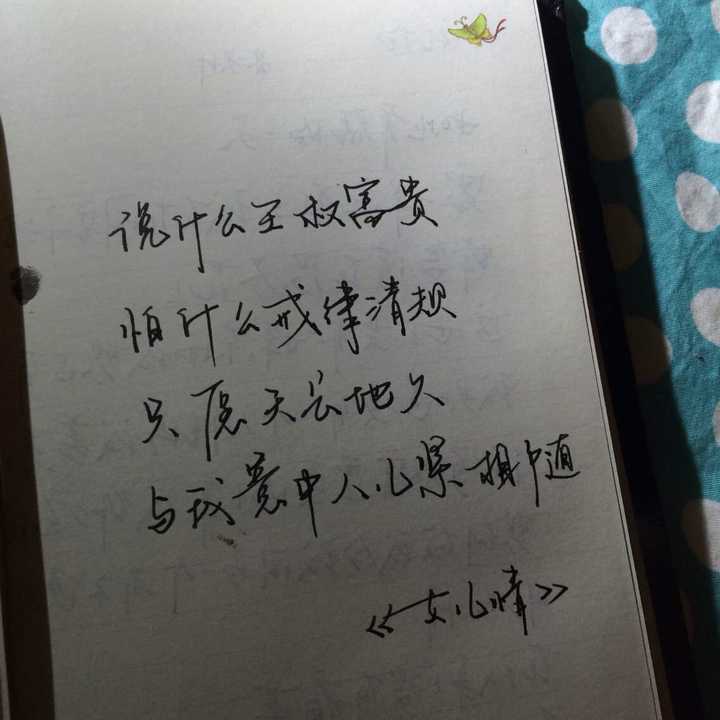 说什么王权富贵
怕什么戒律清规
只愿天长地久
与我意中人儿紧相随
《女儿情》